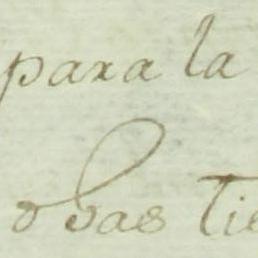 para la
obas Tie